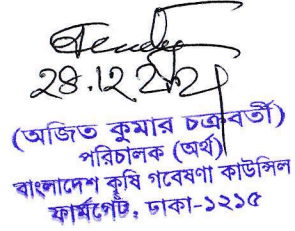 28.12.2021
(অজিত কুমার চক্রবর্তী)
পরিচালক (অর্থ)
বাংলাদেশ কৃষি গবেষণা কাউন্সিল
ফার্মগেট, ঢাকা-১২১৫